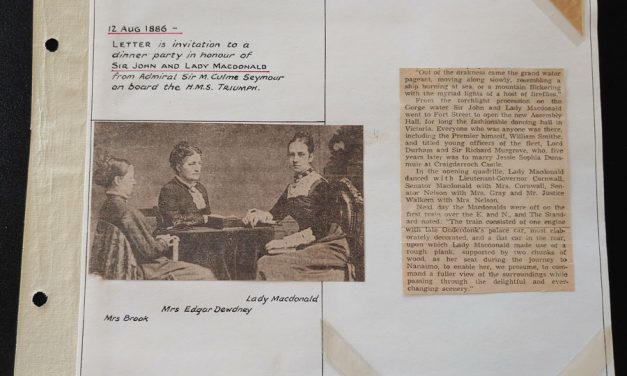 12 AUG 1886 -
LETTER is invitation to a
dinner party in honour of
SIR JOHN AND LADY MACDONALD
from Admiral Sir M. Culme Seymour
on board the H.M.S. TRIUMPH.
Lady Macdonald
Mrs Edgar Dewdney
Mrs Brook
"Out of the darkness came the grand water
pageant, moving along slowly, resembling a
ship burning at sea, or a mountain flickering
with the myriad lights of a host of fireflies."
From the torchlight procession on the
Gorge water Sir John and Lady Macdonald
went to Fort Street to open the new Assembly
Hall, for long the fashionable dancing hall in
Victoria. Everyone who was anyone was there,
including the Premier himself, William Smithe,
and titled young officers of the fleet, Lord
Durham and Sir Richard Musgrove, who, five
years later was to marry Jessie Sophia Duns-
muir at Craigdarroch Castle.
In the opening quadrille, Lady Macdonald
danced with Lieutenant-Governor Cornwall,
Senator Macdonald with Mrs. Cornwall, Sen-
ator Nelson with Mrs. Gray and Mr. Justice
Walkem with Mrs. Nelson.
Next day the Macdonalds were off on the
first train over the E. and N., and The Stand-
ard noted: "The train consisted of one engine
with late Onderdonk's palace car, most elab-
orately decorated, and a flat car in the rear,
upon which Lady Macdonald made use of a
rough plank, supported by two chunks of
wood, as her seat during the journey to
Nanaimo, to enable her, we presume, to com-
mand a fuller view of the surroundings while
passing through the delightful and ever-
changing scenery."